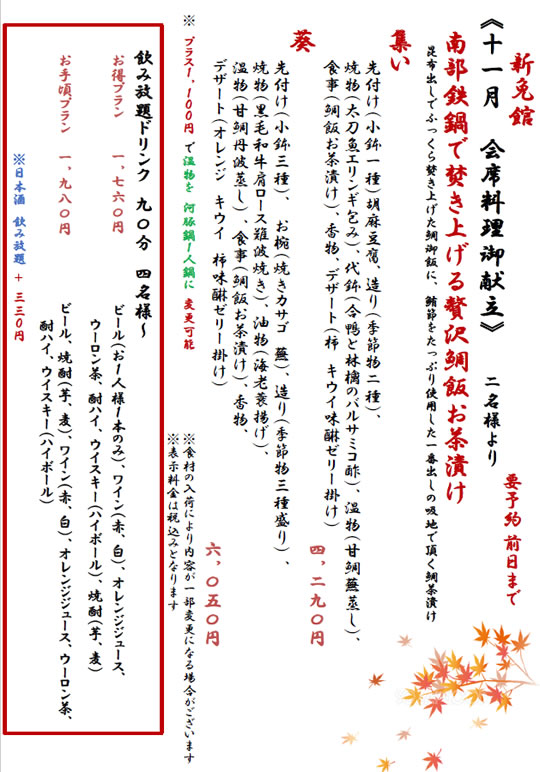 新兎館
要予約 前日まで
《十一月 会席料理御献立》 二名様より
南部鉄鍋で焚き上げる贅沢鯛飯お茶漬け
昆布出しでふっくら焚き上げた鯛御飯に、鮪節をたっぷり使用した一番出しの吸地で頂く鯛茶漬け
集い
先付け(小鉢一種)胡麻豆腐、造り(季節物二種)、
焼物(太刀魚エリンギ包み)、代鉢(合鴨と林檎のバルサミコ酢)、温物(甘鯛蕪蒸し)、
食事(鯛飯お茶漬け)、香物、デザート(柿 キウイ味醂ゼリー掛け)
四、二九〇円
葵
先付け(小鉢三種)、 お椀(焼きカサゴ 蕪)、造り(季節物三種盛り)、
焼物(黒毛和牛肩ロース難波焼き)、油物(海老蓑揚げ)、
温物(甘鯛丹波蒸し)、食事(鯛飯お茶漬け)、香物、
デザート(オレンジ キウイ 柿味醂ゼリー掛け)
六、〇五〇円
※ プラス1,100円 で温物を 河豚鍋1人鍋に 変更可能
※食材の入荷により内容が一部変更になる場合がございます
※表示料金は税込みとなります
飲み放題ドリンク 九〇分 四名様~
お得プラン 一、七六〇円
ビール(お1人様1本のみ)、ワイン(赤、白)、オレンジジュース、
ウーロン茶、酎ハイ、ウイスキー(ハイボール)、焼酎(芋、麦)
お手頃プラン 一、九八〇円
ビール、焼酎(芋、麦)、ワイン(赤、白)、オレンジジュース、ウーロン茶、
酎ハイ、ウイスキー(ハイボール)
※日本酒 飲み放題 + 三三〇円